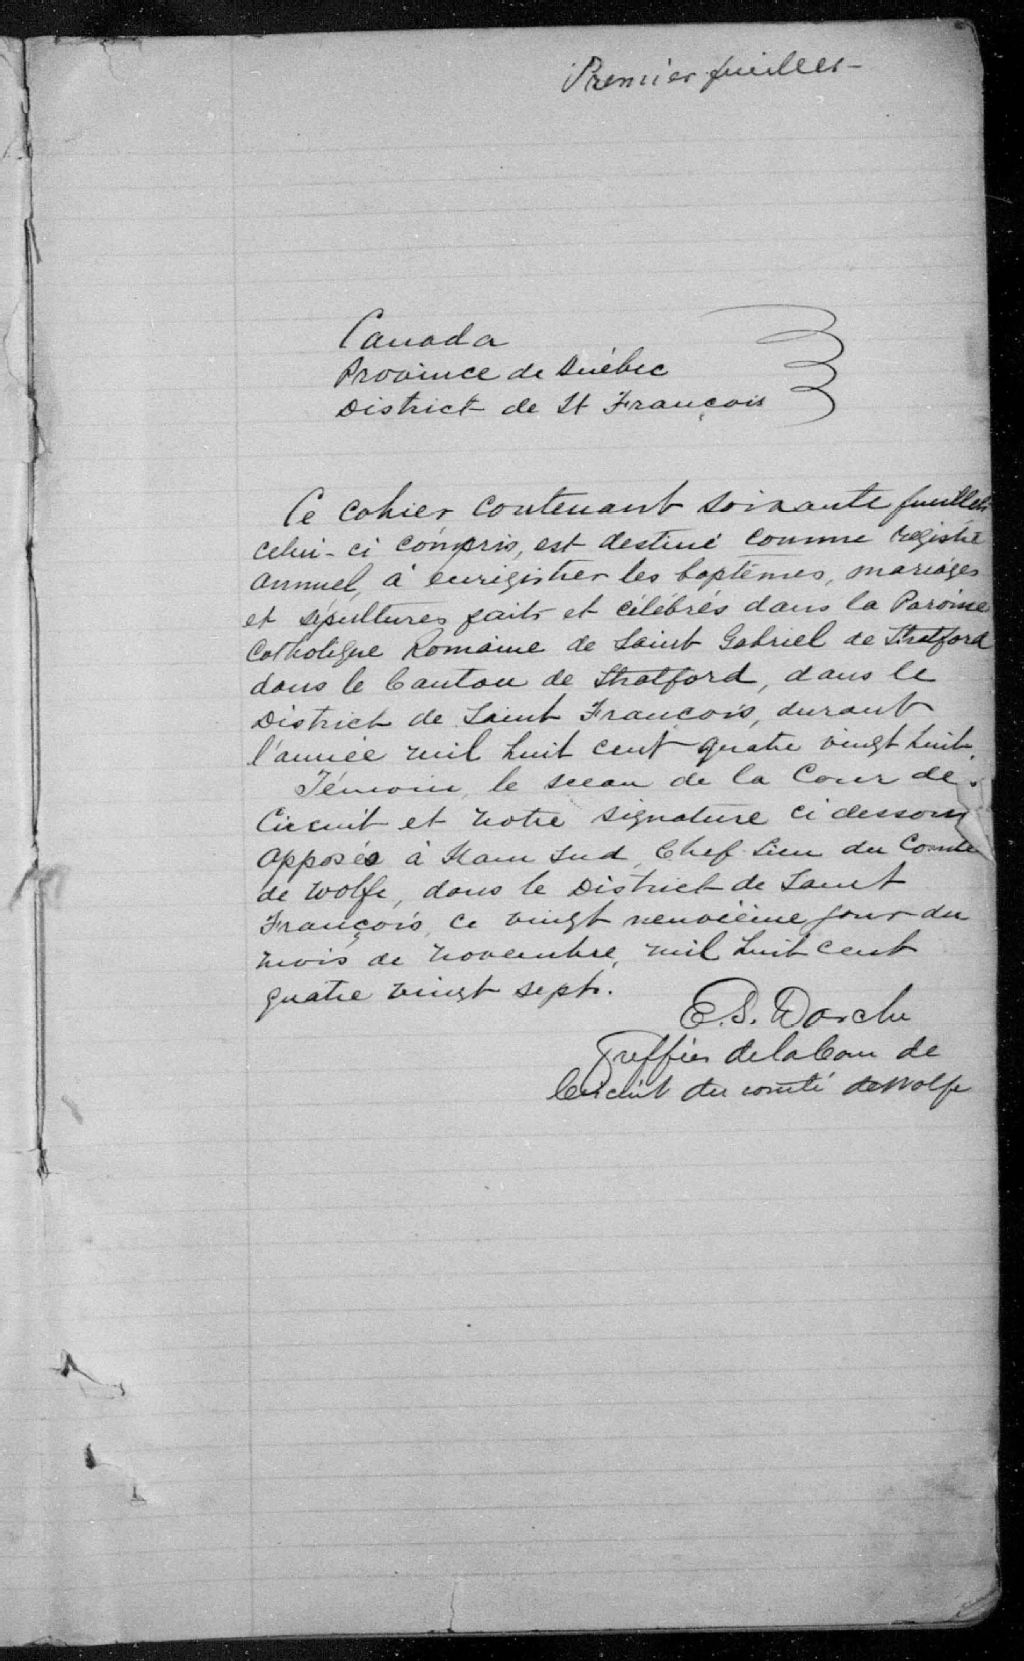 Premier feuillet
Canada
Province de Québec
District de St François
Ce cahier contenant soixante feuillets
celui-ci compris, est destiné comme registre
annuel, à enrégistrer les baptêmes, mariages
et sépultures faits et célébrés dans la Paroisse
Catholique Romaine de Saint Gabriel de Stratford
dans le Canton de Stratford, dans le
District de Saint François, durant
l'année mil huit cent quatre vingt huit.
Témoin, le sceau de la Cour de
Circuit et notre signature ci dessous
apposés à Ham Sud, Chef Lieu du Comté
de Wolfe, dans le District de Saint
François, ce vingt neuvième jour du
mois de Novembre, mil huit cent
quatre vingt sept.
E. S. Darche
Greffier de la Cour de
Circuit du comté de Wolfe